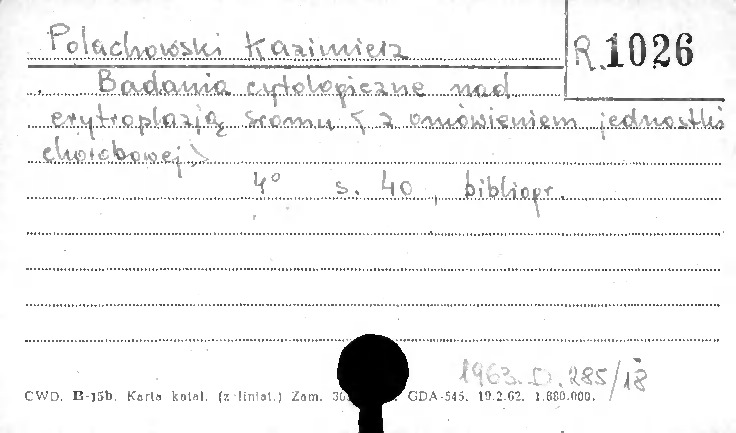 Polachowski Kazimierz
R. 1026
Badania cytologiczne nad
erytroplazją sromu ( z omówieniem jednostki
chorobowej )
4° s. 40, bibliogr.
1963. D. 285/18
CWD. B-15b. Karta katal. (z liniat.) Zam. GDA-545. 19.2.62. 1.880.000.